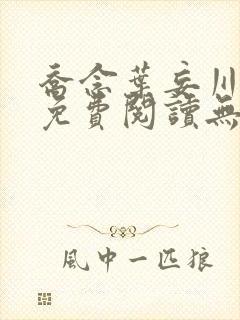 喬念葉妄川
免費閱讀無
風中一匹狼